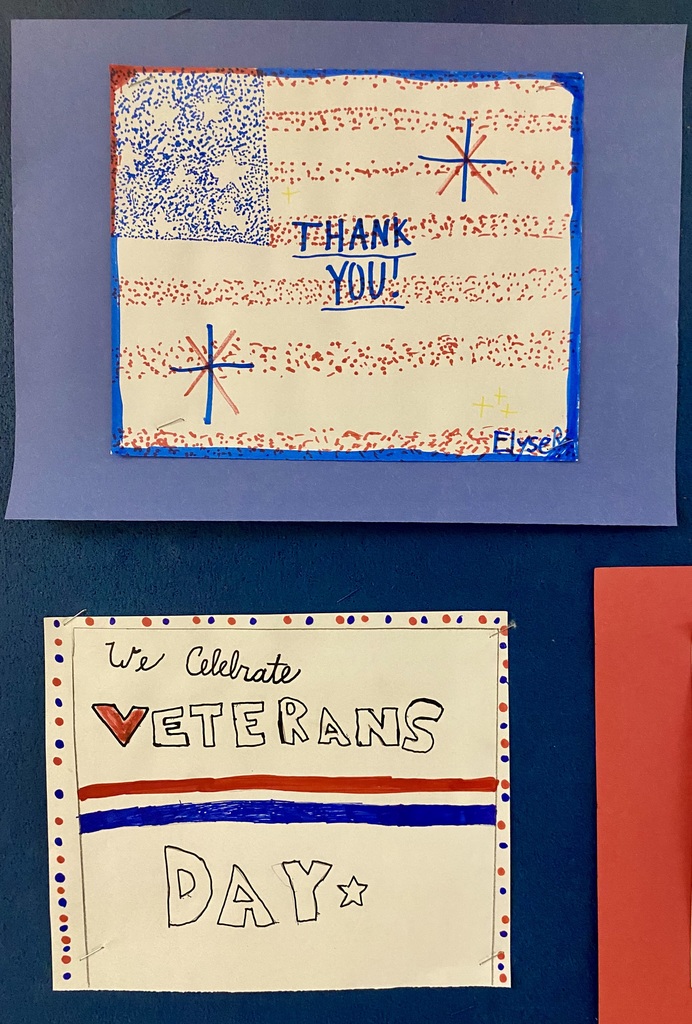 THANK
YOU!
Elyse R
We Celebrate
VETERANS
DAY